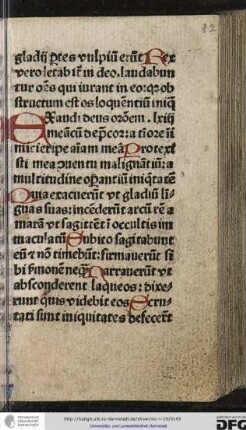 32
gladij ptes vulpiū erūt Rex
vero letabit̄ in deo. laudabun
tur oēs qui iurant in eo: qꝛ ob
structum est os loquentiū iniq̄
Exaudi deus orōem . lxiij
meā cū depcor: a tiōre ini
mici eripe aīam meā Protexi
sti me a ꝯuentu malignātiū: a
multitudine opantiū iniqtatē
Quia exacuerūt vt gladiū lī
guas suas: intēderūt arcū rē a
marā vt sagittēt ī occultis im
maculatū Subito sagitabunt
eū et nō timebūt: firmauerūt si
bi smonē neqͣ Narrauerūt vt
absconderent laqueos: dixe
runt quis videbit eos Scru
tati sunt iniquitates defecert̄
http://tudigit.ulb.tu-darmstadt.de/show/inc-
Universitäts- und Landesbibliothek Darmstadt
DFG